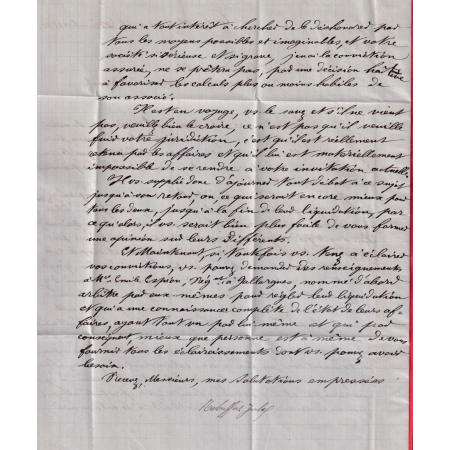 qui a tout intérêt à chercher de le déshonorer par
tous les moyens possibles et imaginables, et votre
société si sérieuse et si grave, j'en ai la conviction
assurée, ne se prêtera pas, par une décision hâtive
à favoriser les calculs plus ou moins habiles de
son associé.
Il est en voyage, vs. le savez et s'il ne vient
pas, veuillez bien le croire, ce n'est pas qu'il veuille
fuir votre juridiction, c'est qu'il est réellement
retenu par les affaires et qu'il lui est matériellement
impossible de se rendre à votre invitation actuelle.
Je vs. supplie donc d'ajourner tout débat à ce sujet
jusqu'à son retour, ou ce qui serait encore mieux pour
tous les deux, jusqu'à la fin de leur liquidation, par
ce qu'alors, il vs. serait bien plus facile de vous former
une opinion sur leurs différents.
Et Maintenant, si toutefois vs. tenez à éclairer
vos convictions, vs. pouvez demander des renseignements
à Mr. Emile Espion, Nég. à Gallargues, nommé d'abord
arbitre par eux-mêmes pour régler leur liquidation
et qui a une connaissance complète de l'état de leurs af-
faires, ayant tout vu par lui-même et qui par
conséquent, mieux que personne est à même de vous
fournir tous les éclaircissements dont vs. pouvez avoir
besoin.
Recevez, Messieurs, mes salutations empressées